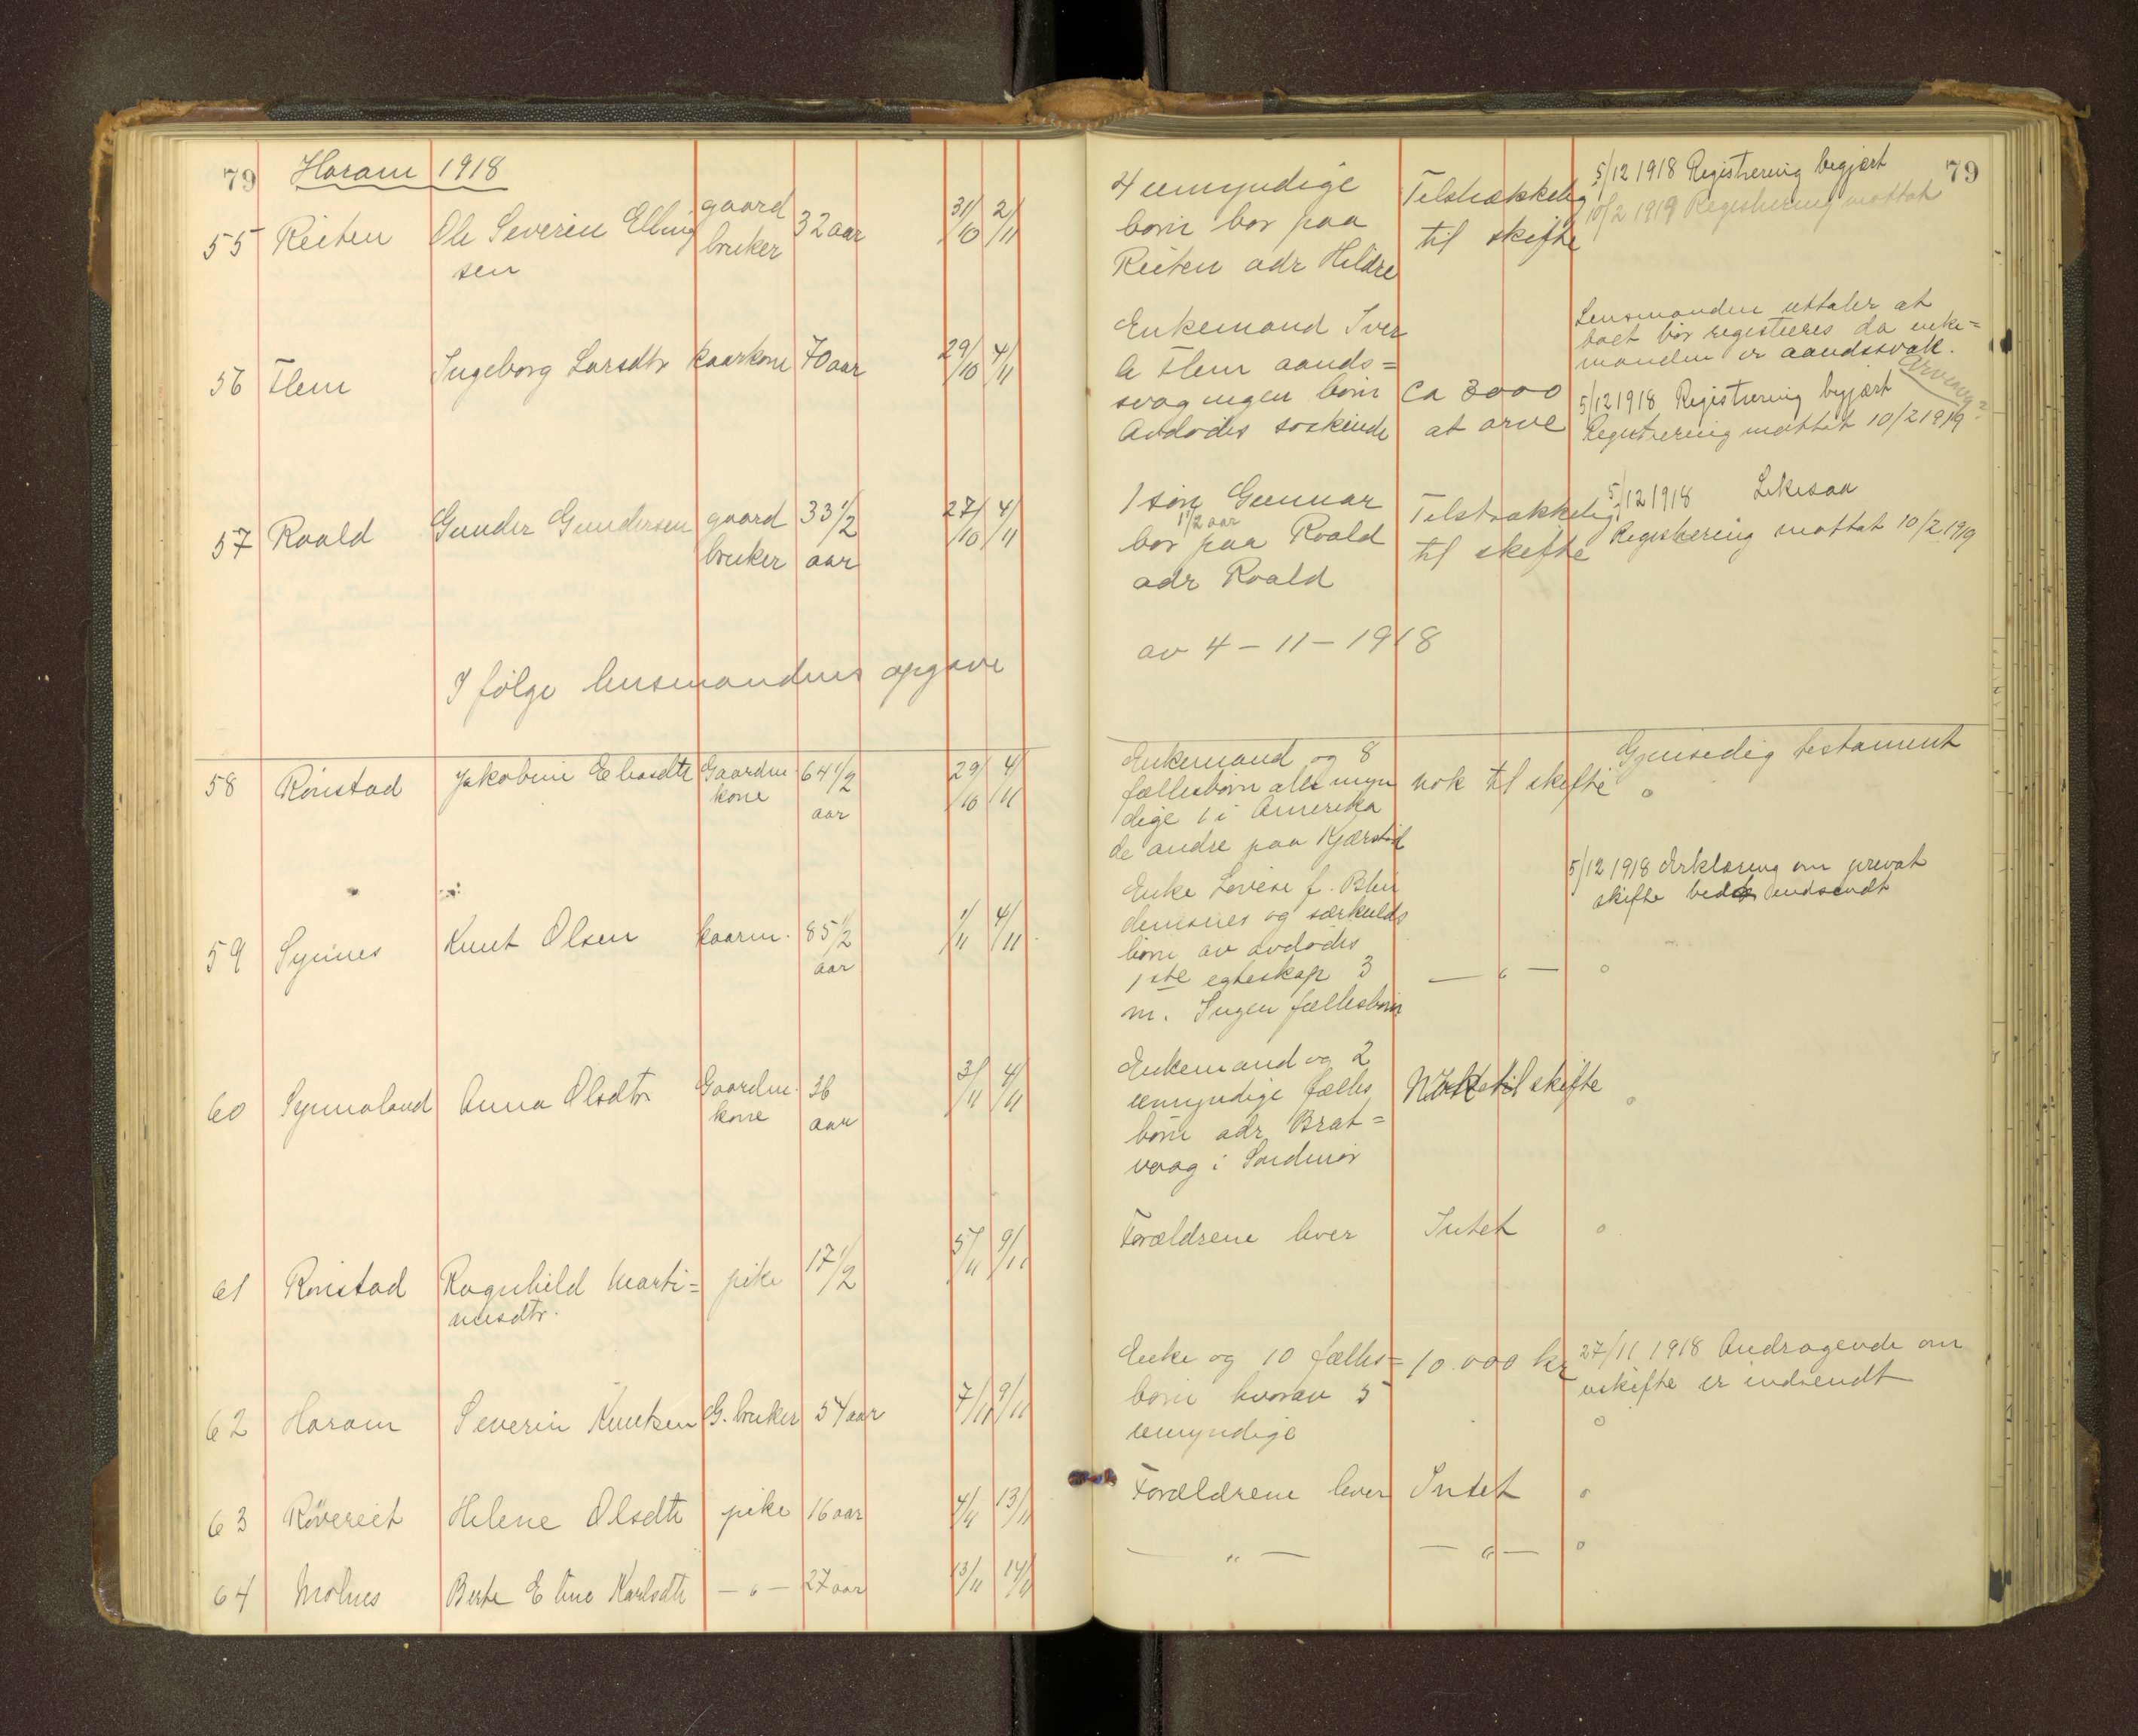 79 Haram 1918
55 Reiten Ole Severin Elling gaard 32 aar 31/10 2/11
sen bruker
56 Flem Ingeborg Larsdtr kaarkone 70 aar 29/10 4/11
57 Roald Gunder Gundersen gaard 33 1/2 27/10 4/11
bruker aar
I følge lensmandens opgave
58 Rönstad Jakobine Eliasdtr Gaardm. 64 1/2 29/10 4/11
kone aar
59 Synnes Knut Olsen kaarm. 85 1/2 1/11 4/11
aar
60 Synnaland Anna Olsdtr Gaardm. 36 3/11 4/11
kone aar
61 Rönstad Ragnhild Marti= pike 17 1/2 5/11 9/11
nusdtr.
62 Haram Severin Knutsen G. bruker 54 aar 7/11 9/11
63 Rövereit Helene Olsdtr pike 16 aar 4/11 13/11
64 Molnes Berte Eline Karlsdtr — " — 27 aar 13/11 14/11
79
4 umyndige Telstrækkelig 5/12 1918 Registrering begjært
born bor paa til skifte 10/2 1919 Registrering mottat
Reiten adr Hildre
Enkemand Iver Lensmanden uttaler at
A Flem aands= boet bör registreres da enke=
svag ingen börn ca 3000 manden er aandssvak.
Avdödes söskende at arve 5/12 1918 Registrering begjært
Registrering mottat 10/2 1919
1 sön Gunnar Telstrækkelig 5/12 1918 Likesaa
1 1/2 aar
bor paa Roald til skifte Registrering mottat 10/2 1919
adr Roald
av 4 – 11 – 1918
Enkemand og 8 Gjensedig testament
fællesbörn alle myn nok til skifte
dige 1 i Amerika
de andre paa Kjærstad
Enke Lovise f. 5/12 1918 Erklæring om privat
og særkulds skifte indsendt
börn av avdödes
1ste egteskap 3 — " —
m. Ingen fællesbörn
Enkemand og 2
umyndige fælles til skifte
börn adr Brat=
vaag i Söndmör
Forældrene lever Intet
Enke og 10 fælles= 10.000 kr 27/11 1918 Andragende om
börn hvorav 5 uskifte er indsendt
umyndige
Forældrene lever Intet
— " — — " —